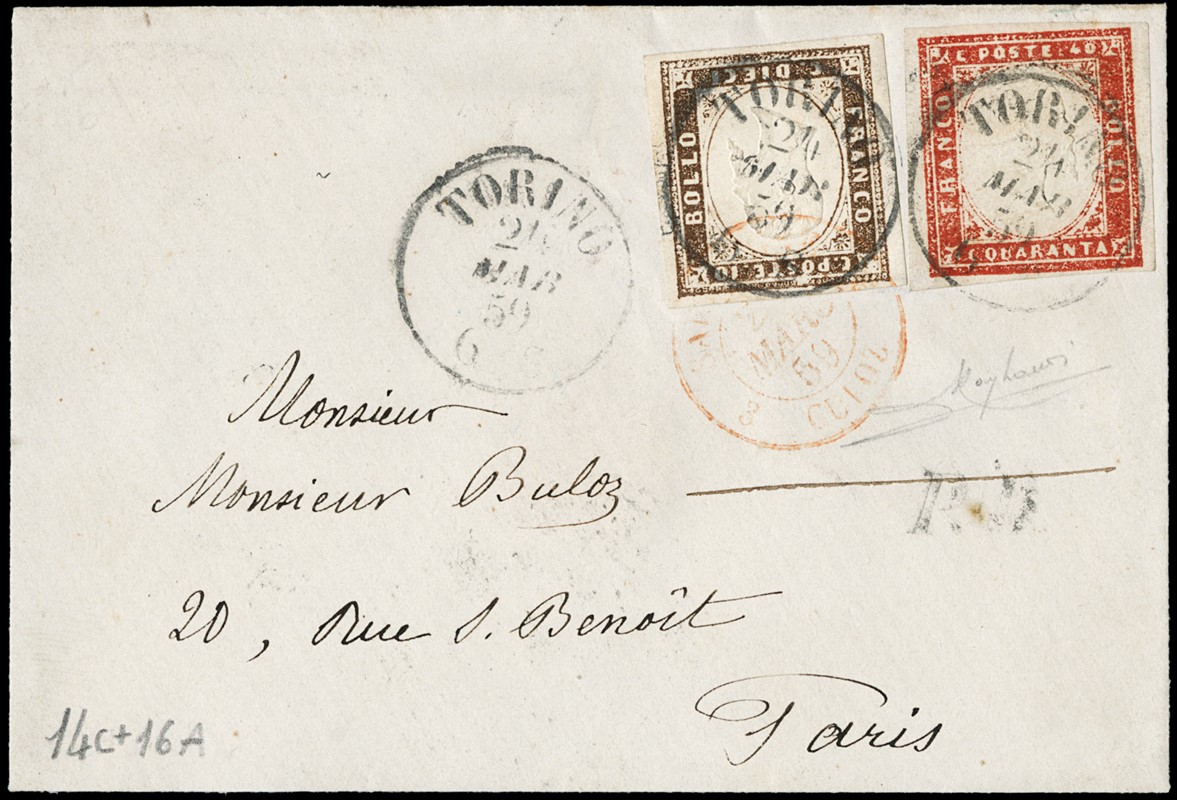 C. DIECI
BOLLO
FRANCO
C. POSTE 10
TORINO
24
MAR
59
C. POSTE 40
FRANCO
BOLLO
C. QUARANTA
TORINO
24
MAR
59
TORINO
24
MAR
59
6 S
MARS
59
CULOZ
8
P.D.
Monsieur
Monsieur Buloz
20, Rue S. Benoît
Paris
14c+16A